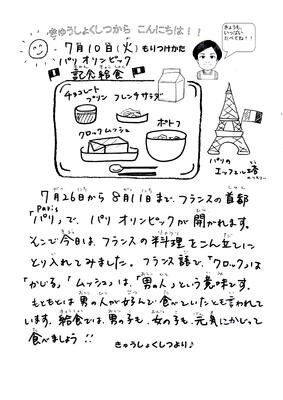 きゅうしょくしつから こんにちは！！
7月10日(火)もりつけかた
パリ オリンピック
記念給食
きょうも、
いっぱい
たべてね！！
チョコレート
プリン
フレンチサラダ
クロックムッシュ
ポトフ
パリの
エッフェル塔
7月26日から 8月11日まで、フランスの首都
Paris
「パリ」で、パリ オリンピックが 開かれます。
そこで今日は、フランスの料理をこんだてに
とり入れてみました。フランス語で、「クロック」は
「かじる」、「ムッシュ」は、「男の人」という意味です。
もともとは 男の人が好んで食べていたとも言われて
います。給食では、男の子も、女の子も、元気にかじって
食べましょう！！
きゅうしょくしつより♪